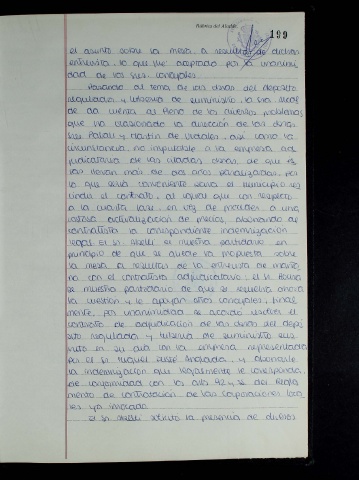 Rúbrica del Alcalde
199
el asunto sobre la mesa a resultas de dichas
entrevista, lo que fue aceptado por la unanimi
dad de los Sres. concejales.
Pasando al tema de las obras del depósito
regulador y tubería de suministro, la Sra.
da cuenta al Pleno de los diversos problemas
que ha ocasionado la dirección de las obras
Sres. y Martín de, así como la
circunstancia, no imputable a la empresa ad
judicataria de las citadas obras, de que és
tas llevan más de dos años paralizadas, por
lo que sería conveniente para el municipio res
cindir el contrato, al igual que con respecto
a la cuarta fase, en vez de proceder a una
costosa actualización de precios, abonando al
contratista la correspondiente indemnización
legal. El Sr. se muestra partidario en
principio de que se quede la propuesta sobre
la mesa, a resultas de la entrevista de maña
na con el contratista adjudicatario. El Sr.
se muestra partidario de que se resuelva ahora
la cuestión y le apoyan otros concejales; final
mente, por unanimidad se acordó rescindir el
contrato de adjudicación de las obras del depó
sito regulador y tubería de suministro sus
crito en su día con la empresa representada
por el Sr. Miguel, y abonarle
la indemnización que legalmente le corresponda,
de conformidad con los arts. 92 y ss. del Regla
mento de contratación de las Corporaciones loca
les, ya invocado.
El Sr. solicitó la presencia de dichos